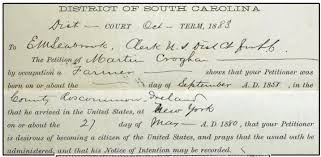 DISTRICT OF SOUTH CAROLINA
Dist — COURT Oct — TERM, 1883
To E M Seabrook, Clerk U S Dist Ct
The Petition of Martin Croghan
by occupation a Farmer shows that your Petitioner
was born on or about the day of September A. D. 1857, in the
County Roscommon, Ireland
that he arrived in the United States, at New York
on or about the 27 day of May A. D. 1880, that your Petitioner
is desirous of becoming a citizen of the United States, and prays that the usual oath be
administered, and that his Notice of Intention may be recorded.